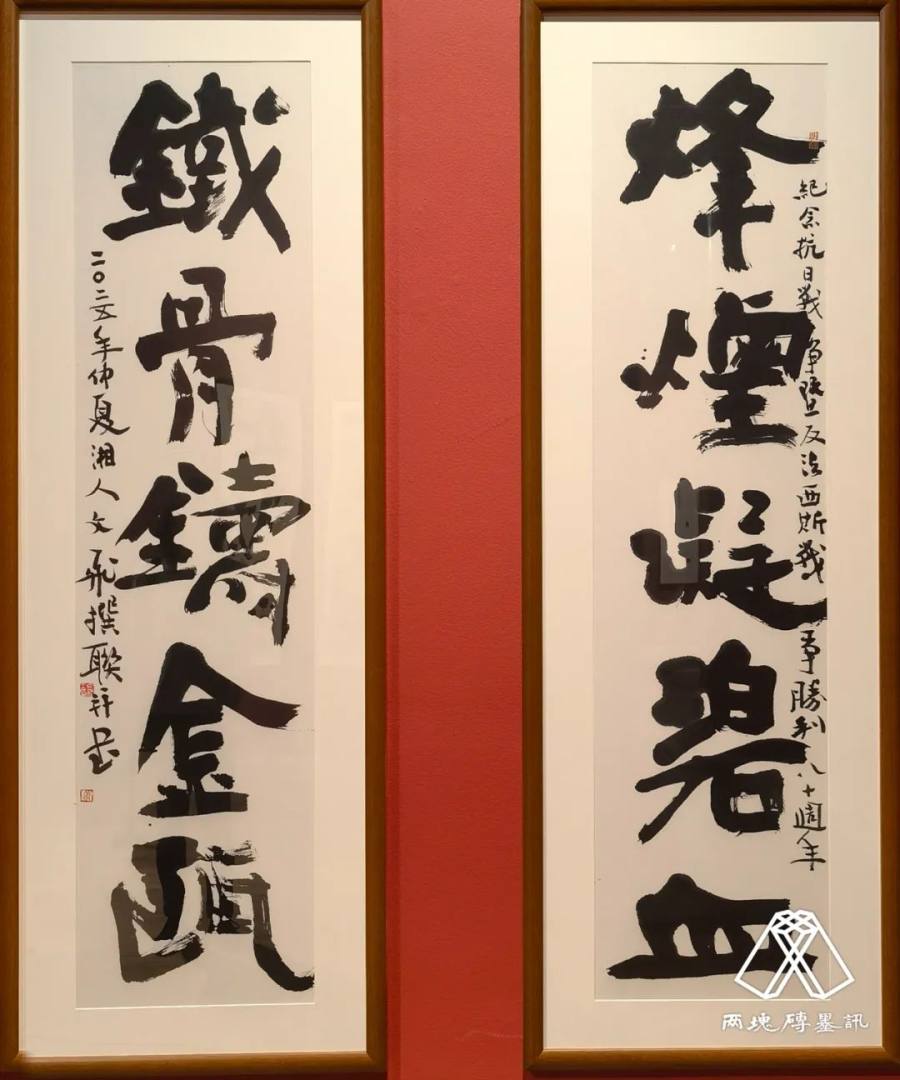 烽煙凝碧血
紀念抗日戰爭暨反法西斯戰爭勝利八十週年
鐵骨鑄金甌
二〇二五年仲夏湘人文飛撰聯并書
两塊磚墨訊